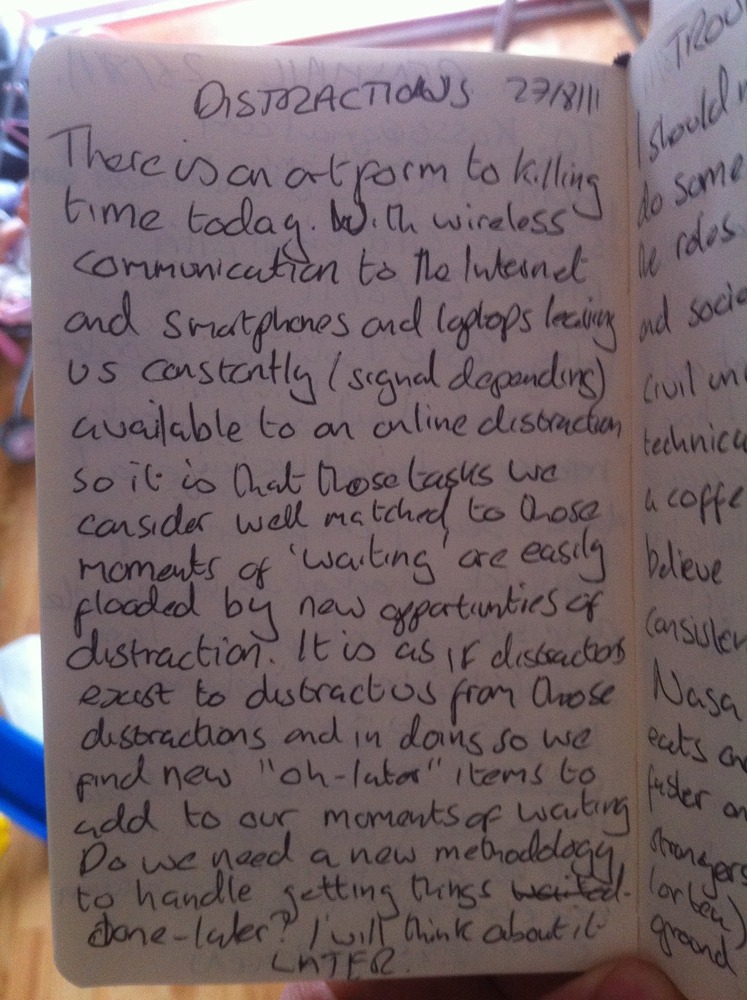 DISTRACTIONS 27/8/11
There is an art form to killing
time today. With wireless
communication to the Internet
and smartphones and laptops leaving
us constantly (signal depending)
available to an online distraction
so it is that those tasks we
consider well matched to those
moments of 'waiting' are easily
flooded by new opportunties of
distraction. It is as if distractors
exist to distract us from those
distractions and in doing so we
find new "oh-later" items to
add to our moments of waiting
Do we need a new methodology
to handle getting things waited-
done-later? I will think about it
LATER.
TROU
I should
do some
he roles
and socie
Civil un
technica
a coffe
believe
consisten
Nasa
eats and
faster on
strangers
(or tea)
ground